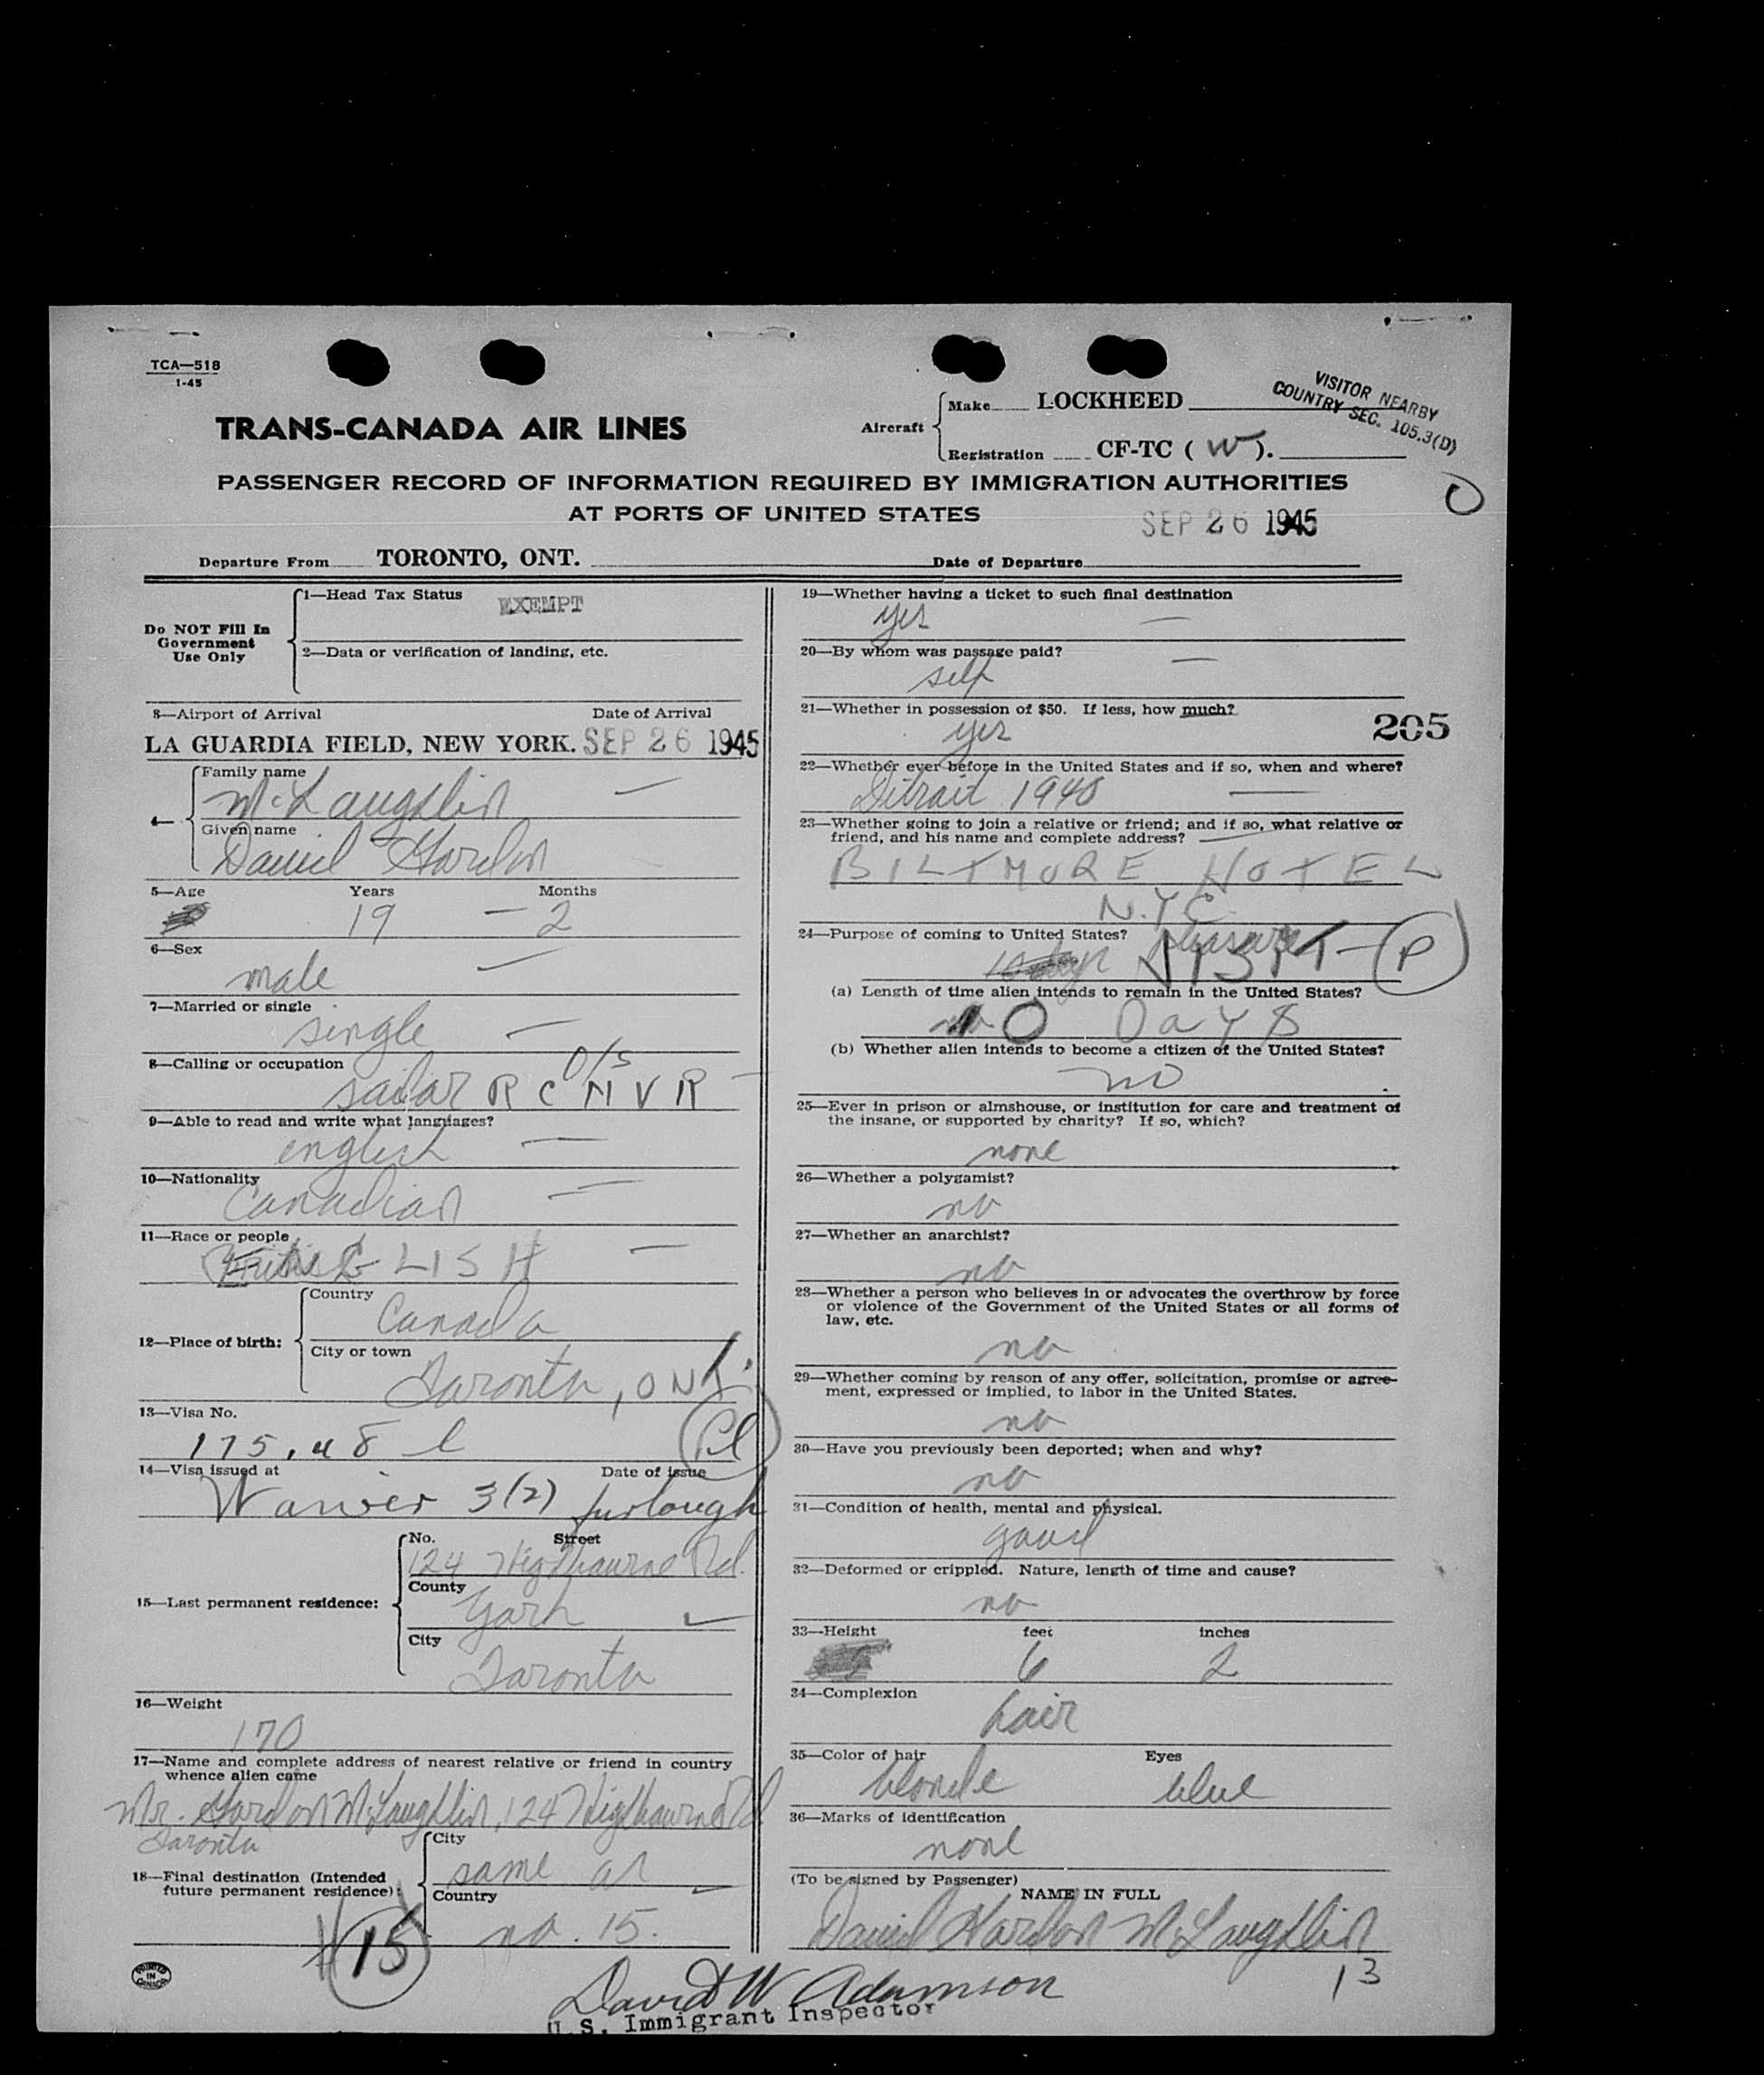 TCA—518
1-45
TRANS-CANADA AIR LINES
Aircraft
Make LOCKHEED
Registration CF-TC ( W ).
VISITOR NEARBY
COUNTRY SEC. 105.3(D)
PASSENGER RECORD OF INFORMATION REQUIRED BY IMMIGRATION AUTHORITIES
AT PORTS OF UNITED STATES
SEP 26 1945
Departure From TORONTO, ONT. Date of Departure
Do NOT Fill In
Government
Use Only
1—Head Tax Status
EXEMPT
2—Data or verification of landing, etc.
3—Airport of Arrival Date of Arrival
LA GUARDIA FIELD, NEW YORK. SEP 26 1945
4—
Family name
McLaughlin —
Given name
Daniel Gordon
5—Age Years Months
19 — 2
6—Sex
male —
7—Married or single
single —
8—Calling or occupation
O/S
sailor R C N V R —
9—Able to read and write what languages?
english —
10—Nationality
Canadian —
11—Race or people
LISH —
12—Place of birth:
Country
Canada
City or town
Toronto, ONT.
13—Visa No.
175.48 l
14—Visa issued at Date of issue
Waiver 3(2) furlough
15—Last permanent residence:
No. Street
124 Highbourne Rd.
County
York
City
Toronto
16—Weight
170
17—Name and complete address of nearest relative or friend in country
whence alien came
Mr. Gordon McLaughlin, 124 Highbourne Rd
Toronto
18—Final destination (Intended
future permanent residence):
City
same as
Country
no. 15.
15
PRINTED
IN
CANADA
19—Whether having a ticket to such final destination
yes —
20—By whom was passage paid?
self —
21—Whether in possession of $50. If less, how much?
yes
205
22—Whether ever before in the United States and if so, when and where?
Detroit 1940 —
23—Whether going to join a relative or friend; and if so, what relative or
friend, and his name and complete address?
BILTMORE HOTEL
N.Y.C.
24—Purpose of coming to United States?
pleasure
VISIT — P
(a) Length of time alien intends to remain in the United States?
10 Days
(b) Whether alien intends to become a citizen of the United States?
no
25—Ever in prison or almshouse, or institution for care and treatment of
the insane, or supported by charity? If so, which?
none
26—Whether a polygamist?
no
27—Whether an anarchist?
no
28—Whether a person who believes in or advocates the overthrow by force
or violence of the Government of the United States or all forms of
law, etc.
no
29—Whether coming by reason of any offer, solicitation, promise or agree-
ment, expressed or implied, to labor in the United States.
no
30—Have you previously been deported; when and why?
no
31—Condition of health, mental and physical.
good
32—Deformed or crippled. Nature, length of time and cause?
no
33—Height feet inches
6 2
34—Complexion
fair
35—Color of hair Eyes
blonde blue
36—Marks of identification
none
(To be signed by Passenger)
NAME IN FULL
Daniel Gordon McLaughlin
13
David W Adamson
U.S. Immigrant Inspector